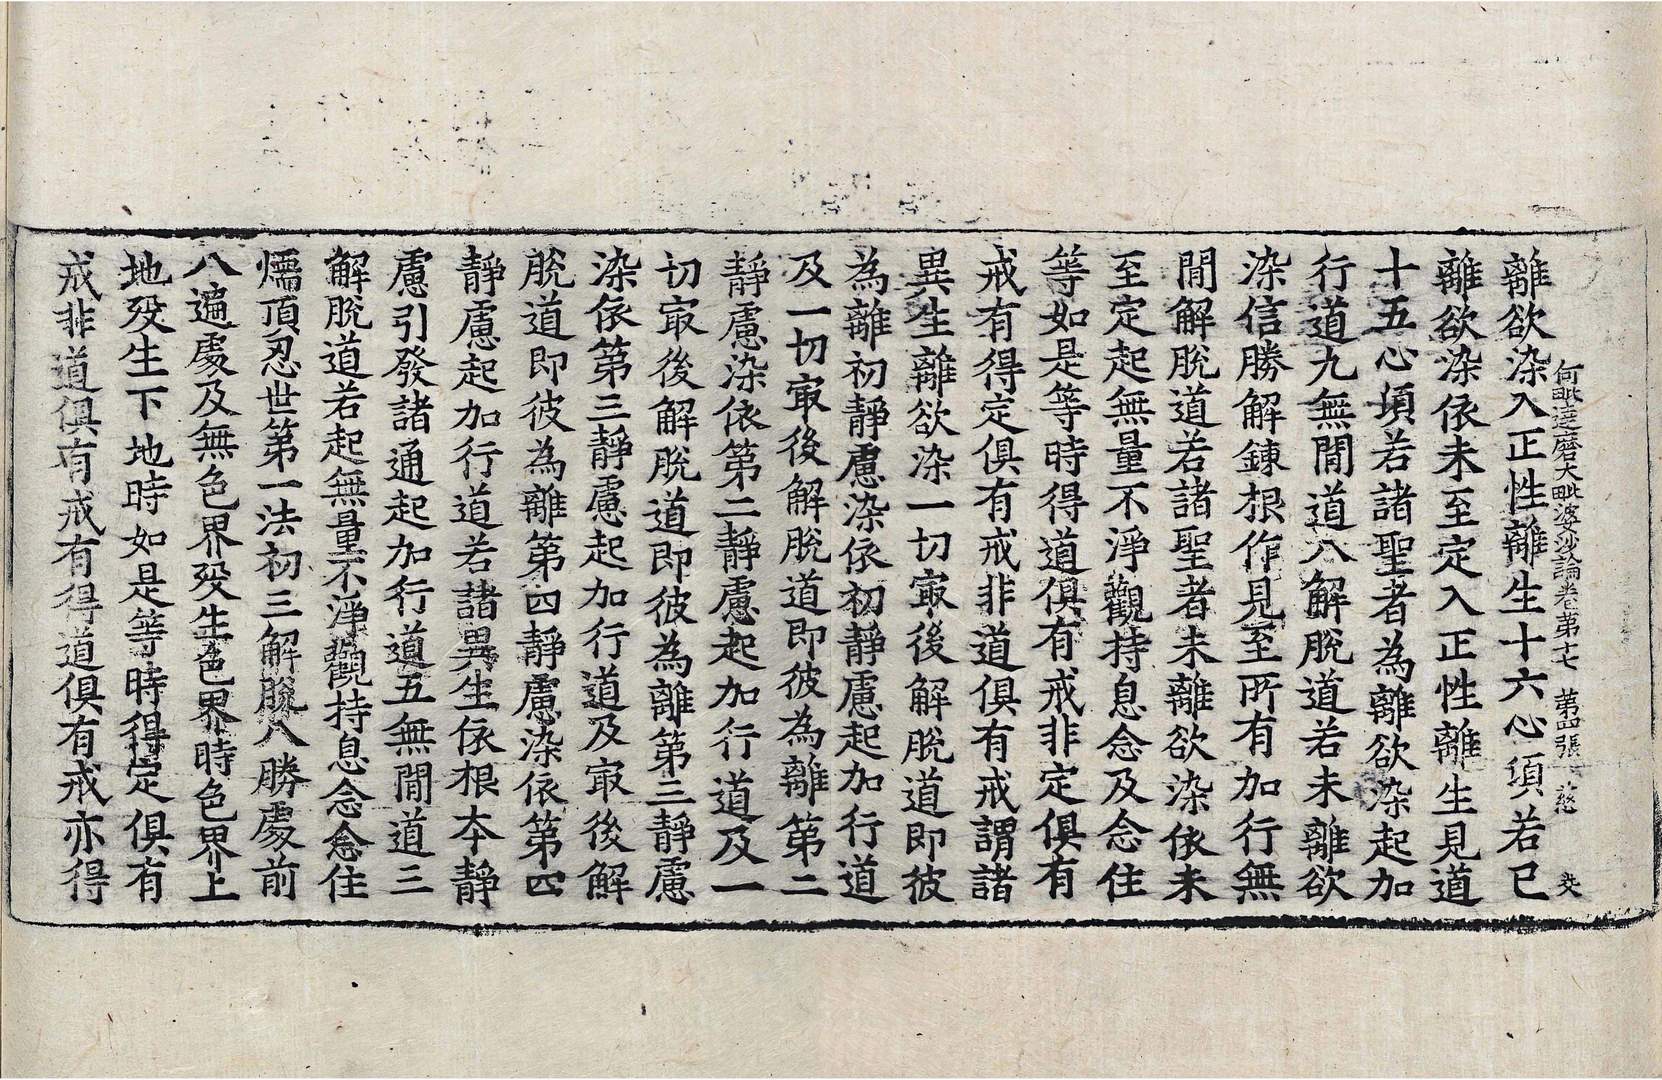 阿毗達磨大毗婆沙論卷第十七 第四張 慈
離欲染入正性離生十六心頃若已
離欲染依未至定入正性離生見道
十五心頃若諸聖者為離欲染起加
行道九無閒道八解脫道若未離欲
染信勝解鍊根作見至所有加行無
閒解脫道若諸聖者未離欲染依未
至定起無量不淨觀持息念及念住
等如是等時得道俱有戒非定俱有
戒有得定俱有戒非道俱有戒謂諸
異生離欲染一切㝡後解脫道即彼
為離初靜慮染依初靜慮起加行道
及一切㝡後解脫道即彼為離第二
靜慮染依第二靜慮起加行道及一
切㝡後解脫道即彼為離第三靜慮
染依第三靜慮起加行道及㝡後解
脫道即彼為離第四靜慮染依第四
靜慮起加行道若諸異生依根本靜
慮引發諸通起加行道五無閒道三
解脫道若起無量不淨觀持息念念住
煗頂忍世第一法初三解脫八勝處前
八遍處及無色界歿生色界時色界上
地歿生下地時如是等時得定俱有
戒非道俱有戒有得道俱有戒亦得